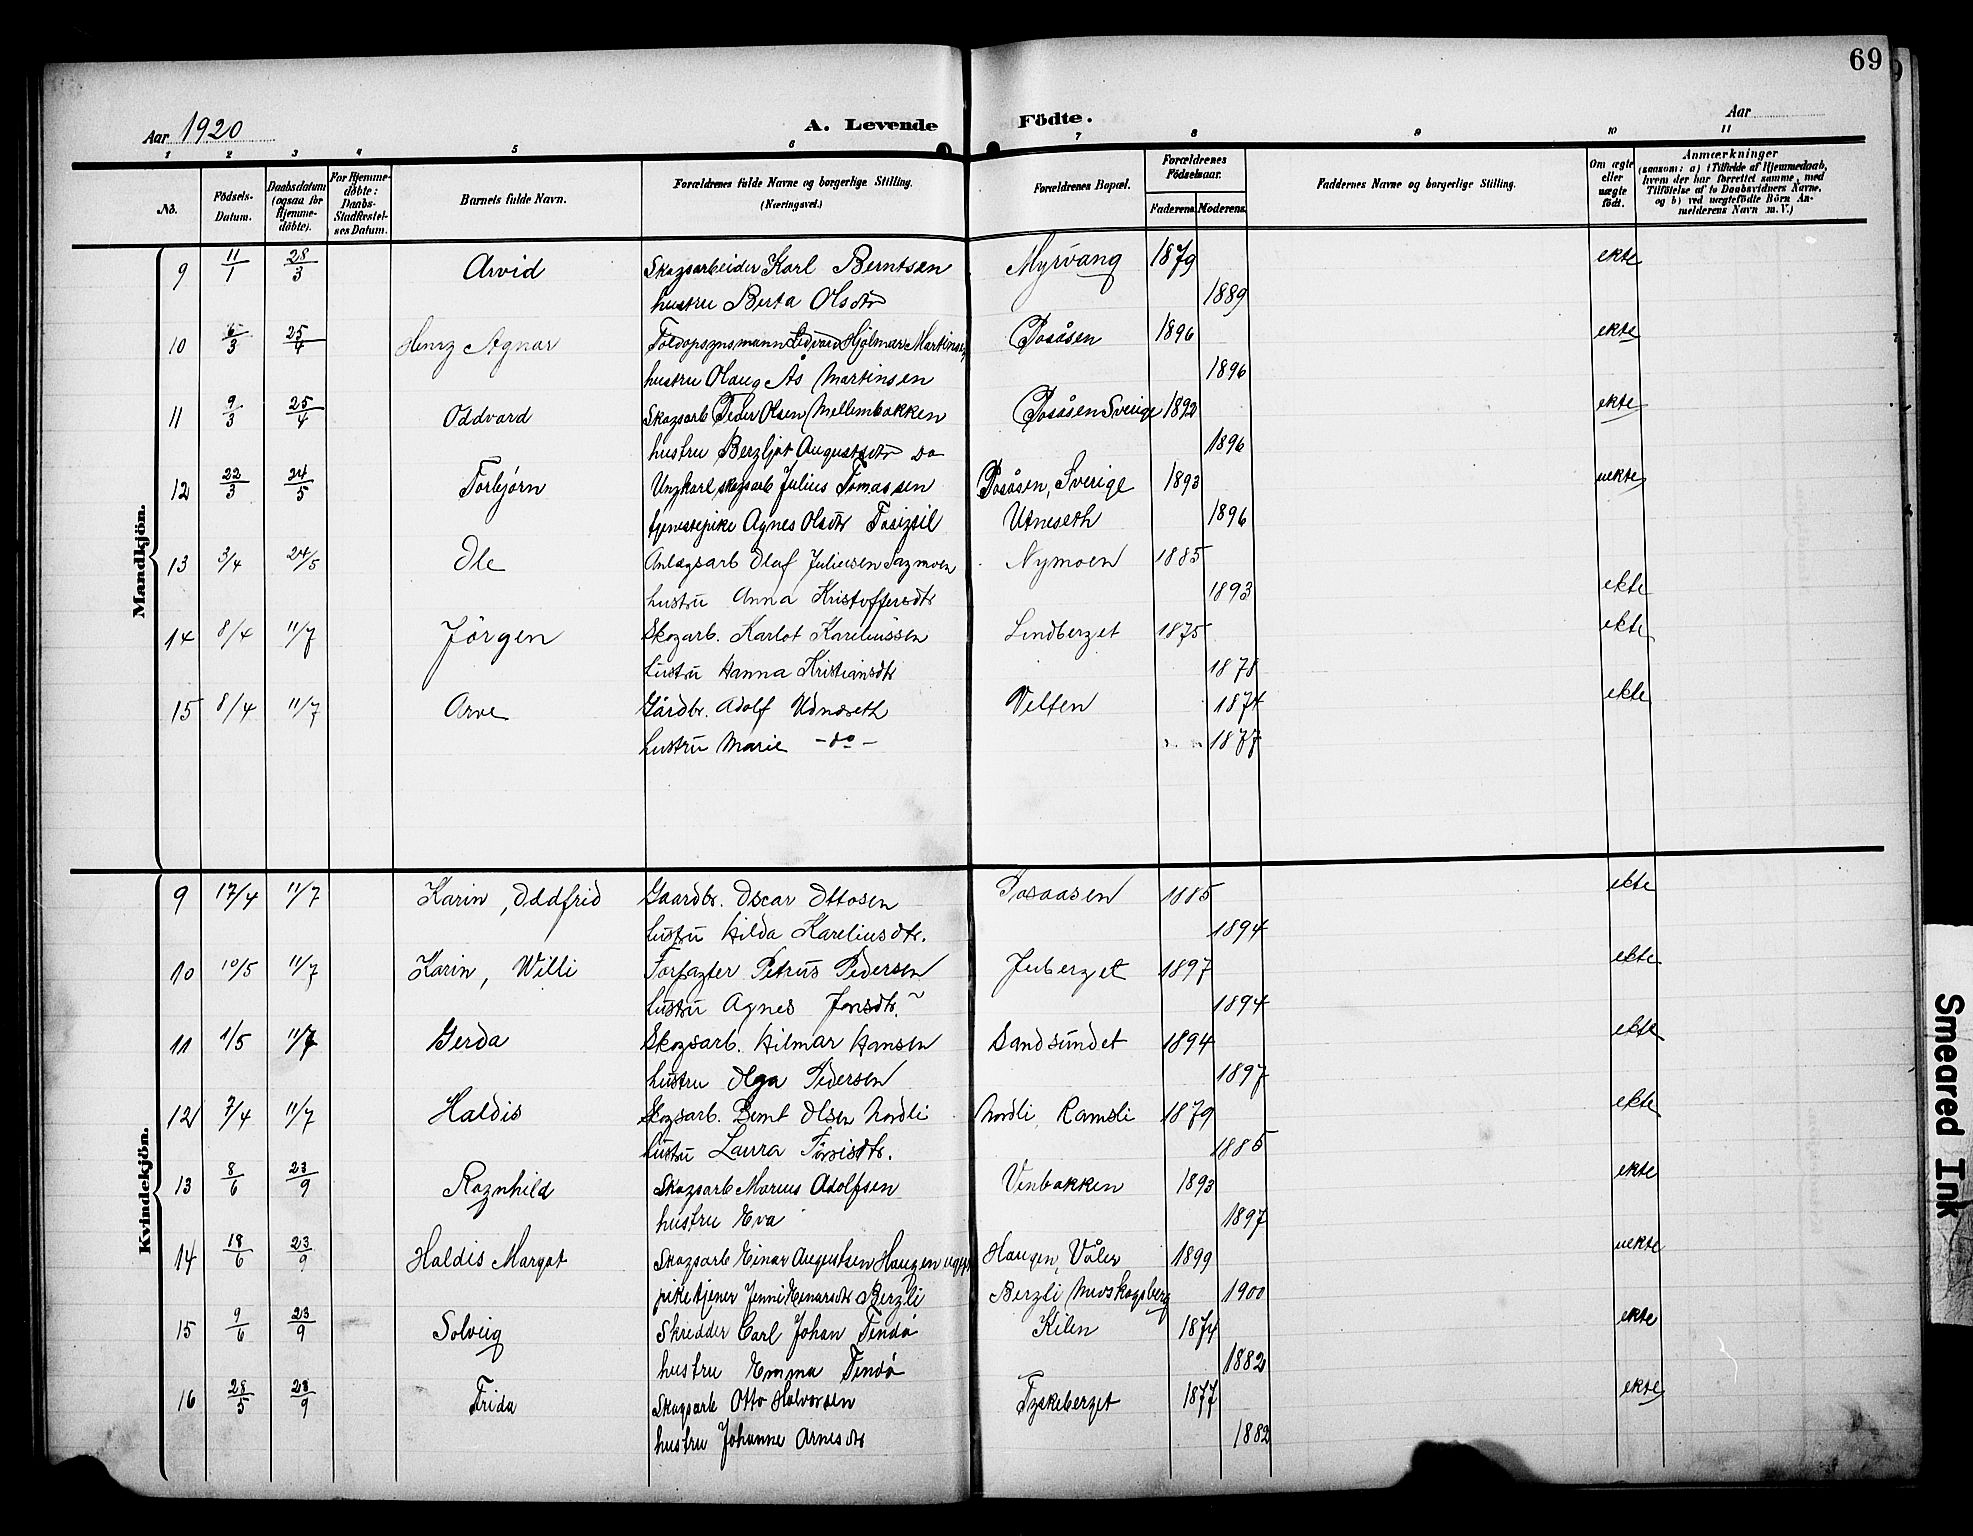 69
Aar 1920
A. Levende Födte.
Aar
1 2 3 4 5 6 7 8 9 10 11
No.
Födsels-Datum.
Daabsdatum (ogsaa for Hjemme-döbte).
For Hjemme-döbte: Daabs-Stadfæstel-ses Datum.
Barnets fulde Navn.
Forældrenes fulde Navne og borgerlige Stilling.
(Næringsvei.)
Forældrenes Bopæl.
Forældrenes Födselsaar.
Faderens. Moderens.
Faddernes Navne og borgerlige Stilling.
Om ægte eller uægte födt.
Anmærkninger
(saasom: a) i Tilfælde af Hjemmedaab,
hvem der har forrettet samme, med
Tilföielse af to Daabsvidners Navne,
og b) ved uægtefödte Börn An-
melderens Navn m. V.)
Mandkjön.
9 11/1 28/3 Arvid Skogsarbeider Karl Berntsen Myrvang 1879 ekte
hustru Berta Olsdtr 1889
10 6/3 25/4 Henry Agnar Toldopsynsmann Edvard Hjalmar Martinsen Posåsen 1896 ekte
hustru Olaug Ås Martinsen 1896
11 9/3 25/4 Oddvard Skogsarb Peder Olsen Mellembakken Posåsen Sverige 1892 ekte
hustru Bergljot Augustsdtr Do 1896
12 22/3 24/5 Torbjørn Ungkarl, skogsarb Julius Tomassen Posåsen, Sverige 1893 uekte
tjenestepike Agnes Olsdtr Utneseth 1896
13 3/4 24/5 Ole Anlægsarb Olaf Juliussen Sagmoen Nymoen 1885
hustru Anna Kristoffersdtr 1893 ekte
14 8/4 11/7 Jörgen Skogarb. Karlot Kareliussen Lindberget 1875 ekte
hustru Hanna Kristiansdtr 1878
15 8/4 11/7 Arve Gårdbr. Adolf Udnæseth Velten 1874 ekte
hustru Marie - do - 1877
Kvindekjön.
9 17/4 11/7 Karin, Oddfrid Gaardbr. Oscar Ottosen Posaasen 1885 ekte
hustru Hilda Kareliusdtr. 1894
10 10/5 11/7 Karin, Willi Forpagter Petrus Pedersen Juberget 1897 ekte
hustru Agnes Jonsdtr. 1894
11 1/5 11/7 Gerda Skogsarb. Hilmar Hansen Sandsundet 1894 ekte
hustru Olga Pedersen 1897
12 7/4 11/7 Haldis Skogsarb. Bernt Olsen Nordli Nordli, Ramsli 1879 ekte
hustru Laura 1885
13 8/6 23/9 Ragnhild Skogsarb Marius Adolfsen Vinbakken 1893 ekte
hustru Eva 1897
14 18/6 23/9 Haldis Margot Skogsarb Einar Augustsen Haugen Haugen, Våler 1899 uekte
pike tjener Jenni Einarsdtr Bergli Bergli 1900
15 9/6 23/9 Solveig Skredder Carl Johan Tendø Kilen 1874 ekte
hustru Emma Tendø 1882
16 28/5 28/9 Frida Skogsarb Otto Halvorsen Tyskeberget 1877 ekte
hustru Johanne Arnesdtr 1882
Smeared Ink